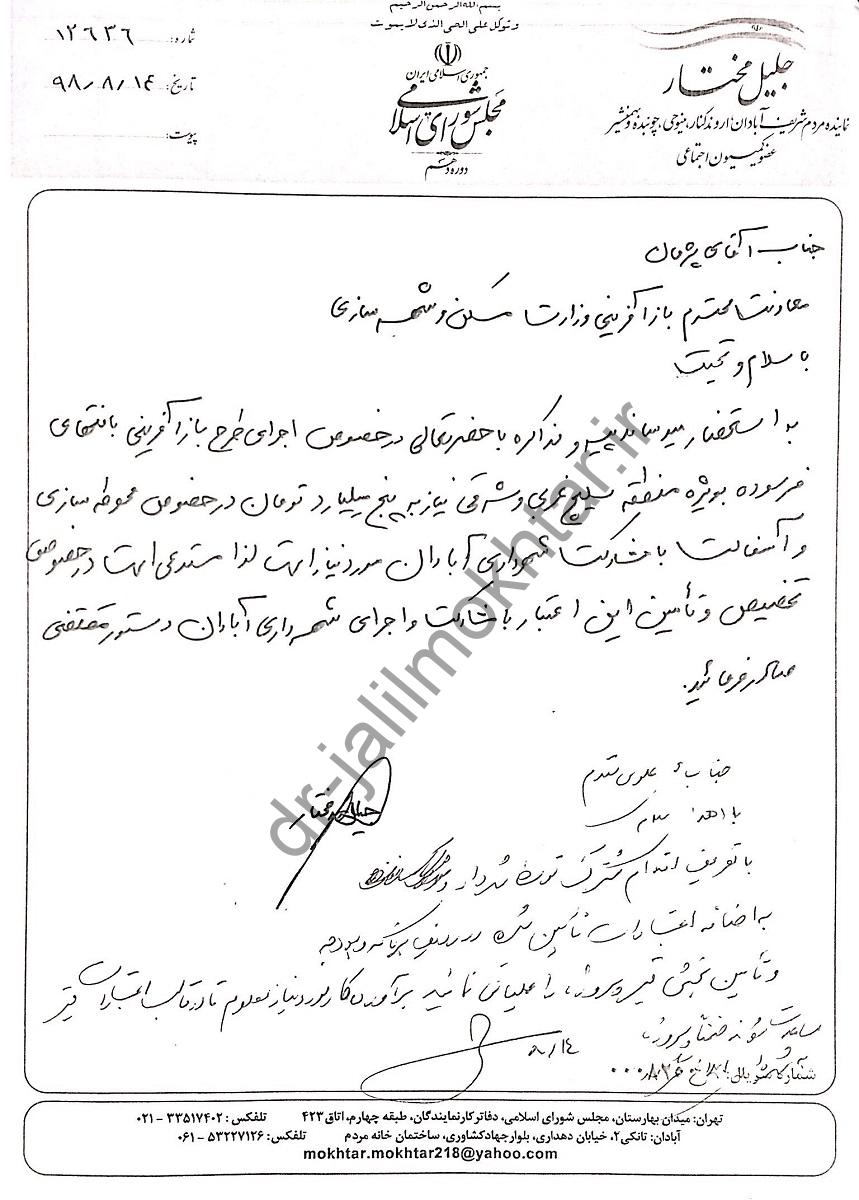 بسم الله الرحمن الرحیم
و توکل علی الحی الذی لایموت
جمهوری اسلامی ایران
مجلس شورای اسلامی
دوره دهم
جلیل مختار
نماینده مردم شریف آبادان، اروندکنار، منیوحی، چوئبده و بهمنشیر
عضو کمیسیون اجتماعی
شماره: ۱۲۶۳۶
تاریخ: ۹۸/۸/۱۴
پیوست:
جناب آقای پژمان
معاونت محترم بازآفرینی وزارت مسکن و شهرسازی
با سلام و تحیت
به استحضار میرساند پیرو مذاکره با حضرتعالی در خصوص اجرای طرح بازآفرینی بافتهای
فرسوده بویژه منطقه سلیچ غربی و شرقی نیاز به پنج میلیارد تومان در خصوص محوطه سازی
و آسفالت با مشارکت شهرداری آبادان مورد نیاز است لذا مستدعی است در خصوص
تخصیص و تأمین این اعتبار با مشارکت و اجرای شهرداری آبادان دستور مقتضی
صادر فرمائید.
جلیل مختار
جناب آ علوی مقدم
با اهداء سلام
با تعریف اقدام مشترک توسط شهردار و
به اضافه اعتبارات تأمین شده در ردیف برنامه و بودجه
و تأمین بخشی قیر پروژه را عملیاتی نمائید برآورد کار مورد نیاز معلوم تا در قالب اعتبارات قیر
مساعدت شود ضمناً پروژه
۸/۱۴
dr-jalilmokhtar.ir
تهران: میدان بهارستان، مجلس شورای اسلامی، دفاتر کار نمایندگان، طبقه چهارم، اتاق ۴۲۳ تلفکس: ۳۳۵۱۷۴۰۲ - ۰۲۱
آبادان: تانکی۲، خیابان دهداری، بلوار جهاد کشاورزی، ساختمان خانه مردم تلفکس: ۵۳۲۲۷۱۲۶ - ۰۶۱
mokhtar.mokhtar218@yahoo.com